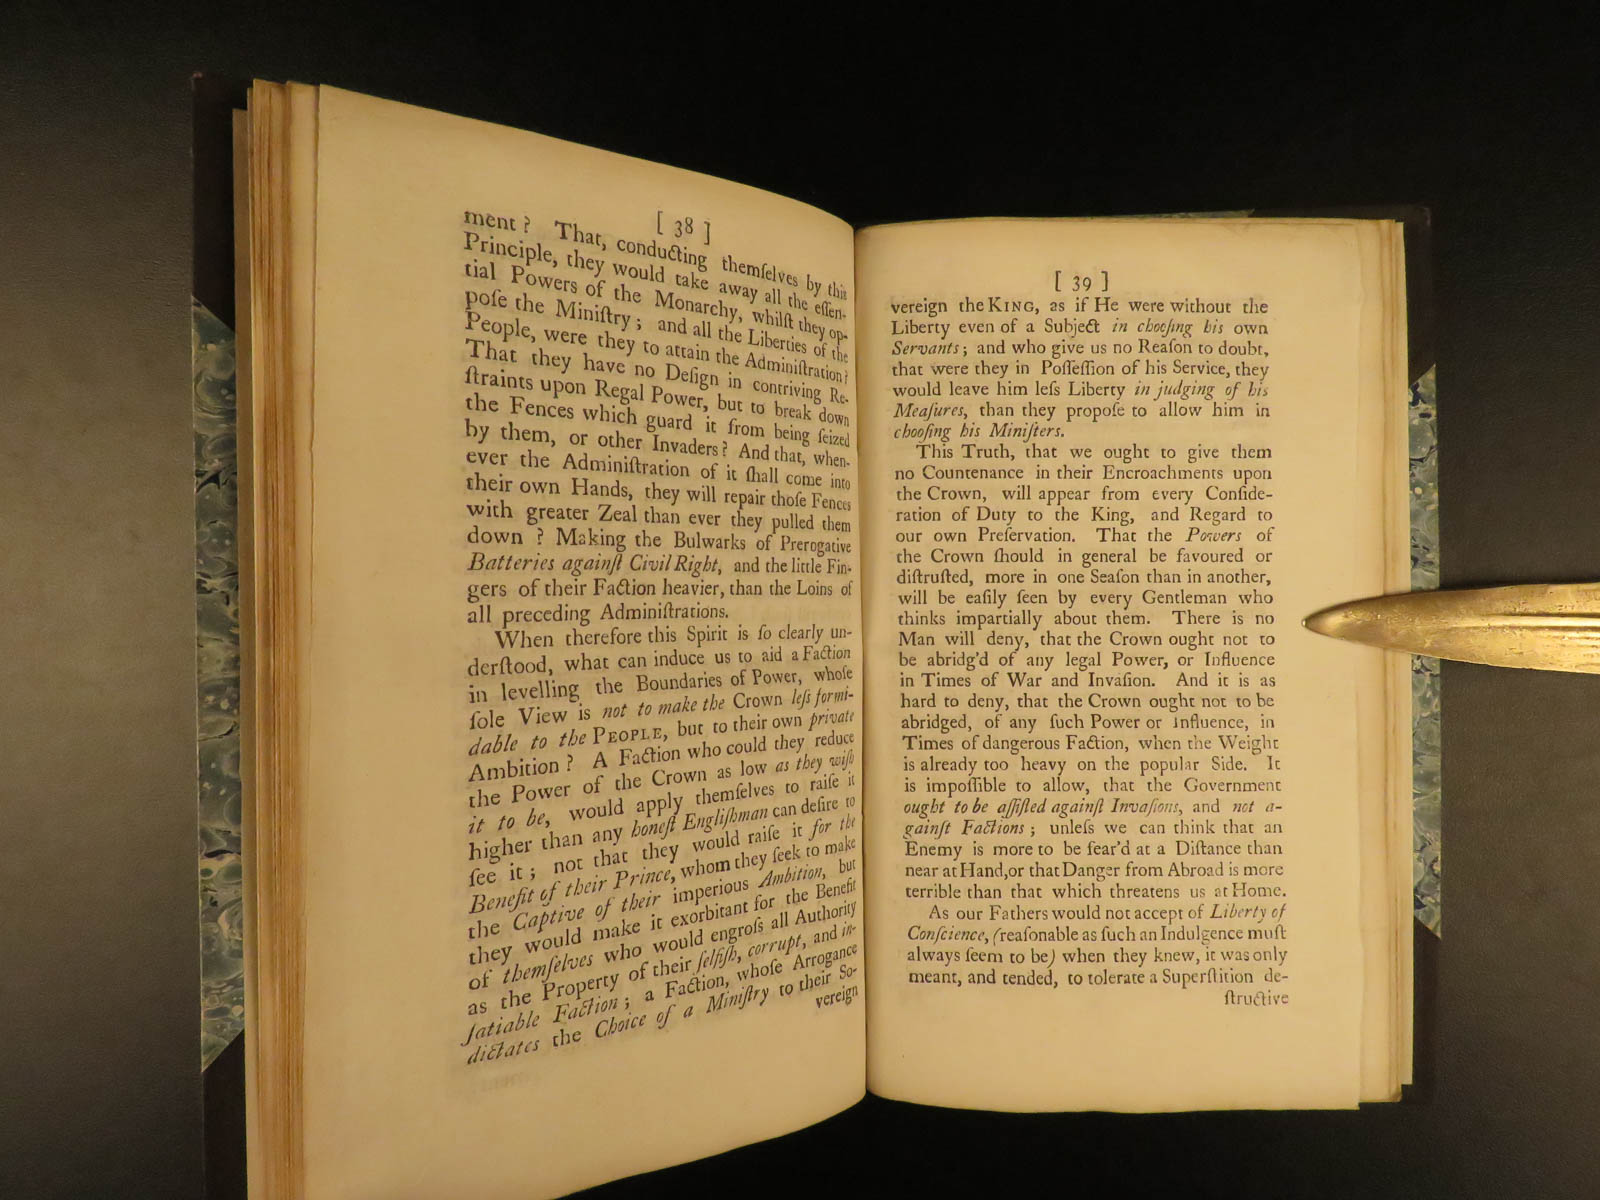 [ 38 ]
ment ? That, conducting themſelves by this
Principle, they would take away all the eſſen-
tial Powers of the Monarchy, whilſt they op-
poſe the Miniſtry ; and all the Liberties of the
People, were they to attain the Adminiſtration?
That they have no Deſign in contriving Re-
ſtraints upon Regal Power, but to break down
the Fences which guard it from being ſeized
by them, or other Invaders ? And that, when-
ever the Adminiſtration of it ſhall come into
their own Hands, they will repair thoſe Fences
with greater Zeal than ever they pulled them
down ? Making the Bulwarks of Prerogative
Batteries againſt Civil Right, and the little Fin-
gers of their Faction heavier, than the Loins of
all preceding Adminiſtrations.
When therefore this Spirit is ſo clearly un-
derſtood, what can induce us to aid a Faction
in levelling the Boundaries of Power, whoſe
ſole View is not to make the Crown leſs formi-
dable to the PEOPLE, but to their own private
Ambition ? A Faction who could they reduce
the Power of the Crown as low as they wiſh
it to be, would apply themſelves to raiſe it
higher than any honeſt Engliſhman can deſire to
ſee it ; not that they would raiſe it for the
Benefit of their Prince, whom they ſeek to make
the Captive of their imperious Ambition, but
they would make it exorbitant for the Benefit
of themſelves who would engroſs all Authority
as the Property of their ſelfiſh, corrupt, and in-
ſatiable Faction ; a Faction, whoſe Arrogance
dictates the Choice of a Miniſtry to their So-
vereign
[ 39 ]
vereign the KING, as if He were without the
Liberty even of a Subject in chooſing his own
Servants ; and who give us no Reaſon to doubt,
that were they in Poſſeſſion of his Service, they
would leave him leſs Liberty in judging of his
Meaſures, than they propoſe to allow him in
chooſing his Miniſters.
This Truth, that we ought to give them
no Countenance in their Encroachments upon
the Crown, will appear from every Conſide-
ration of Duty to the King, and Regard to
our own Preſervation. That the Powers of
the Crown ſhould in general be favoured or
diſtruſted, more in one Seaſon than in another,
will be eaſily ſeen by every Gentleman who
thinks impartially about them. There is no
Man will deny, that the Crown ought not to
be abridg'd of any legal Power, or Influence
in Times of War and Invaſion. And it is as
hard to deny, that the Crown ought not to be
abridged, of any ſuch Power or Influence, in
Times of dangerous Faction, when the Weight
is already too heavy on the popular Side. It
is impoſſible to allow, that the Government
ought to be aſſiſted againſt Invaſions, and not a-
gainſt Factions ; unleſs we can think that an
Enemy is more to be fear'd at a Diſtance than
near at Hand, or that Danger from Abroad is more
terrible than that which threatens us at Home.
As our Fathers would not accept of Liberty of
Conſcience, (reaſonable as ſuch an Indulgence muſt
always ſeem to be) when they knew, it was only
meant, and tended, to tolerate a Superſtition de-
ſtructive